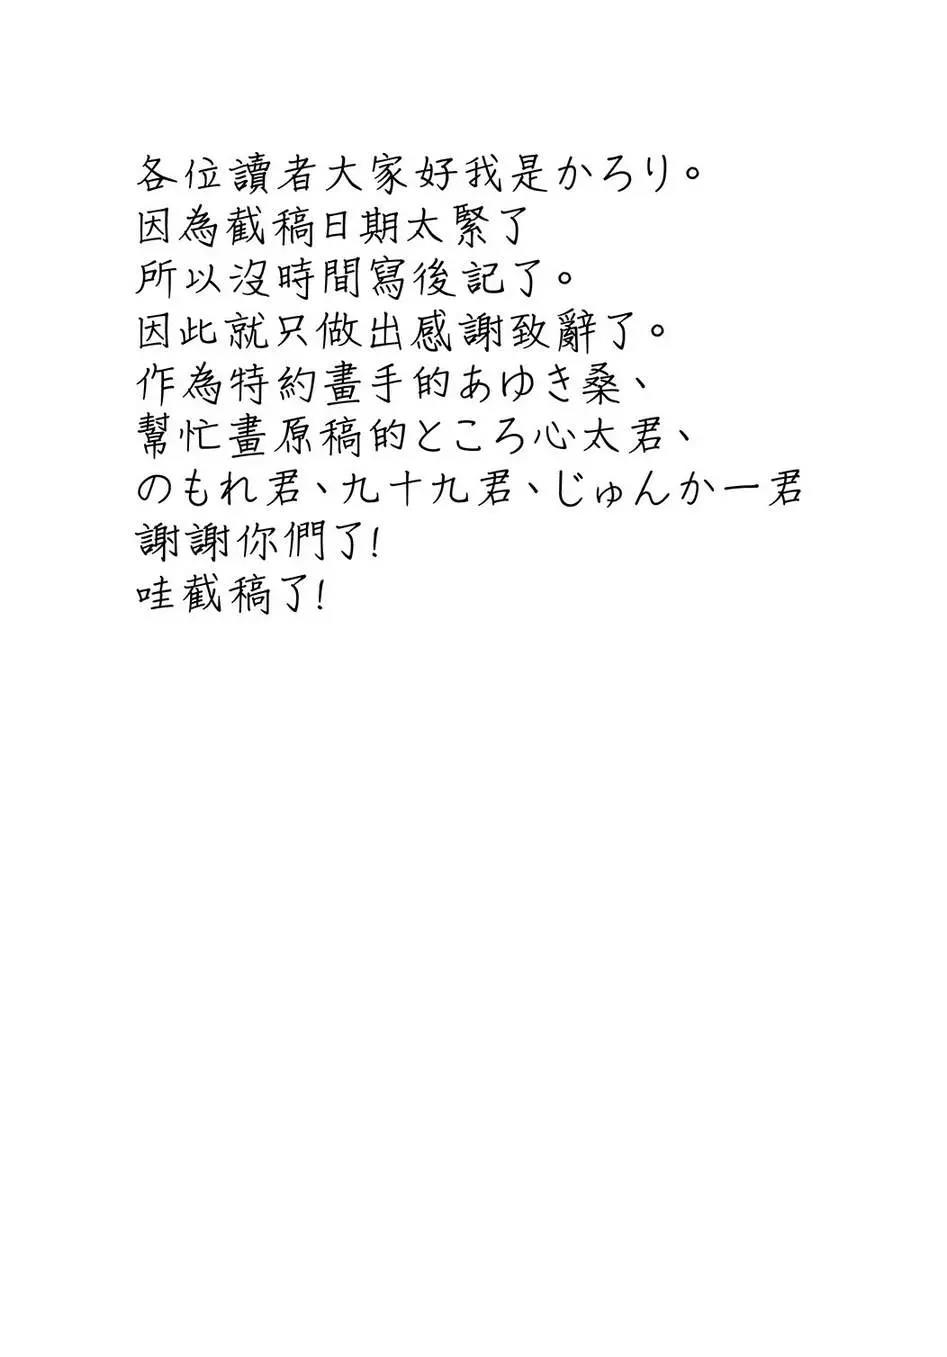 各位讀者大家好我是かろり。
因為截稿日期太緊了
所以沒時間寫後記了。
因此就只做出感謝致辭了。
作為特約畫手的あゆき桑、
幫忙畫原稿的ところ心太君、
のもれ君、九十九君、じゅんかー君
謝謝你們了!
哇截稿了!